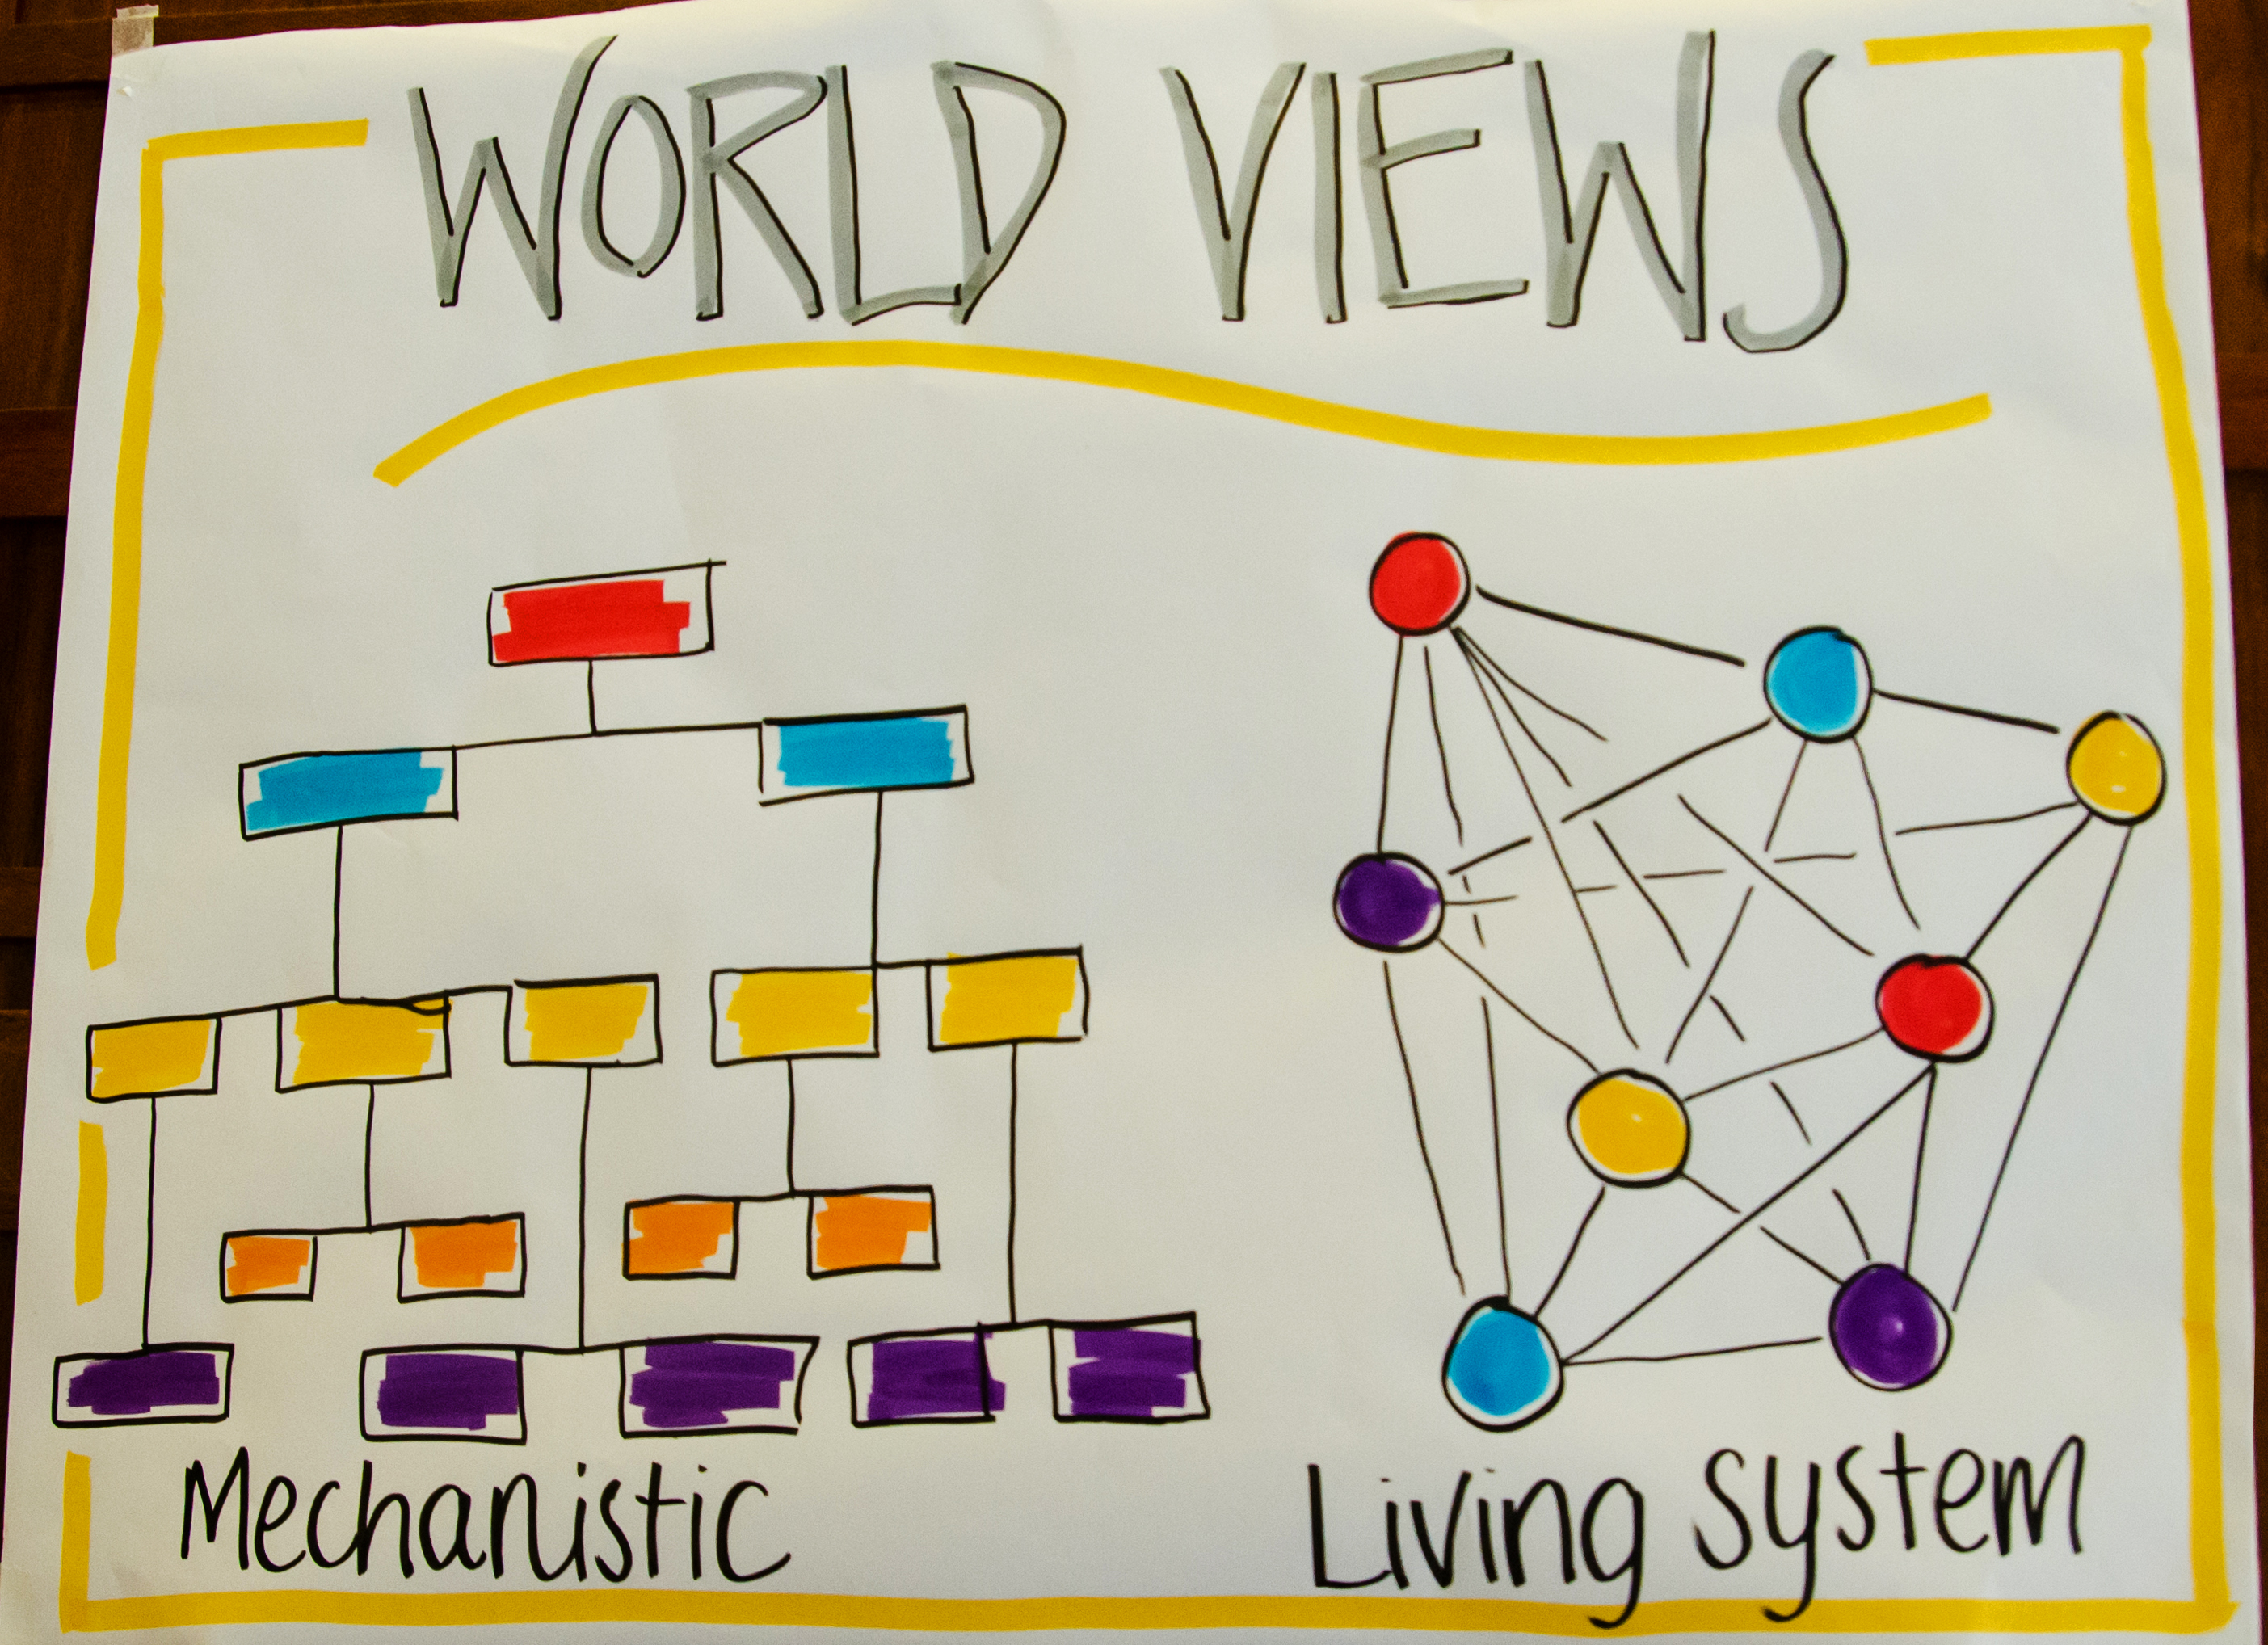 WORLD VIEWS
Mechanistic
Living system